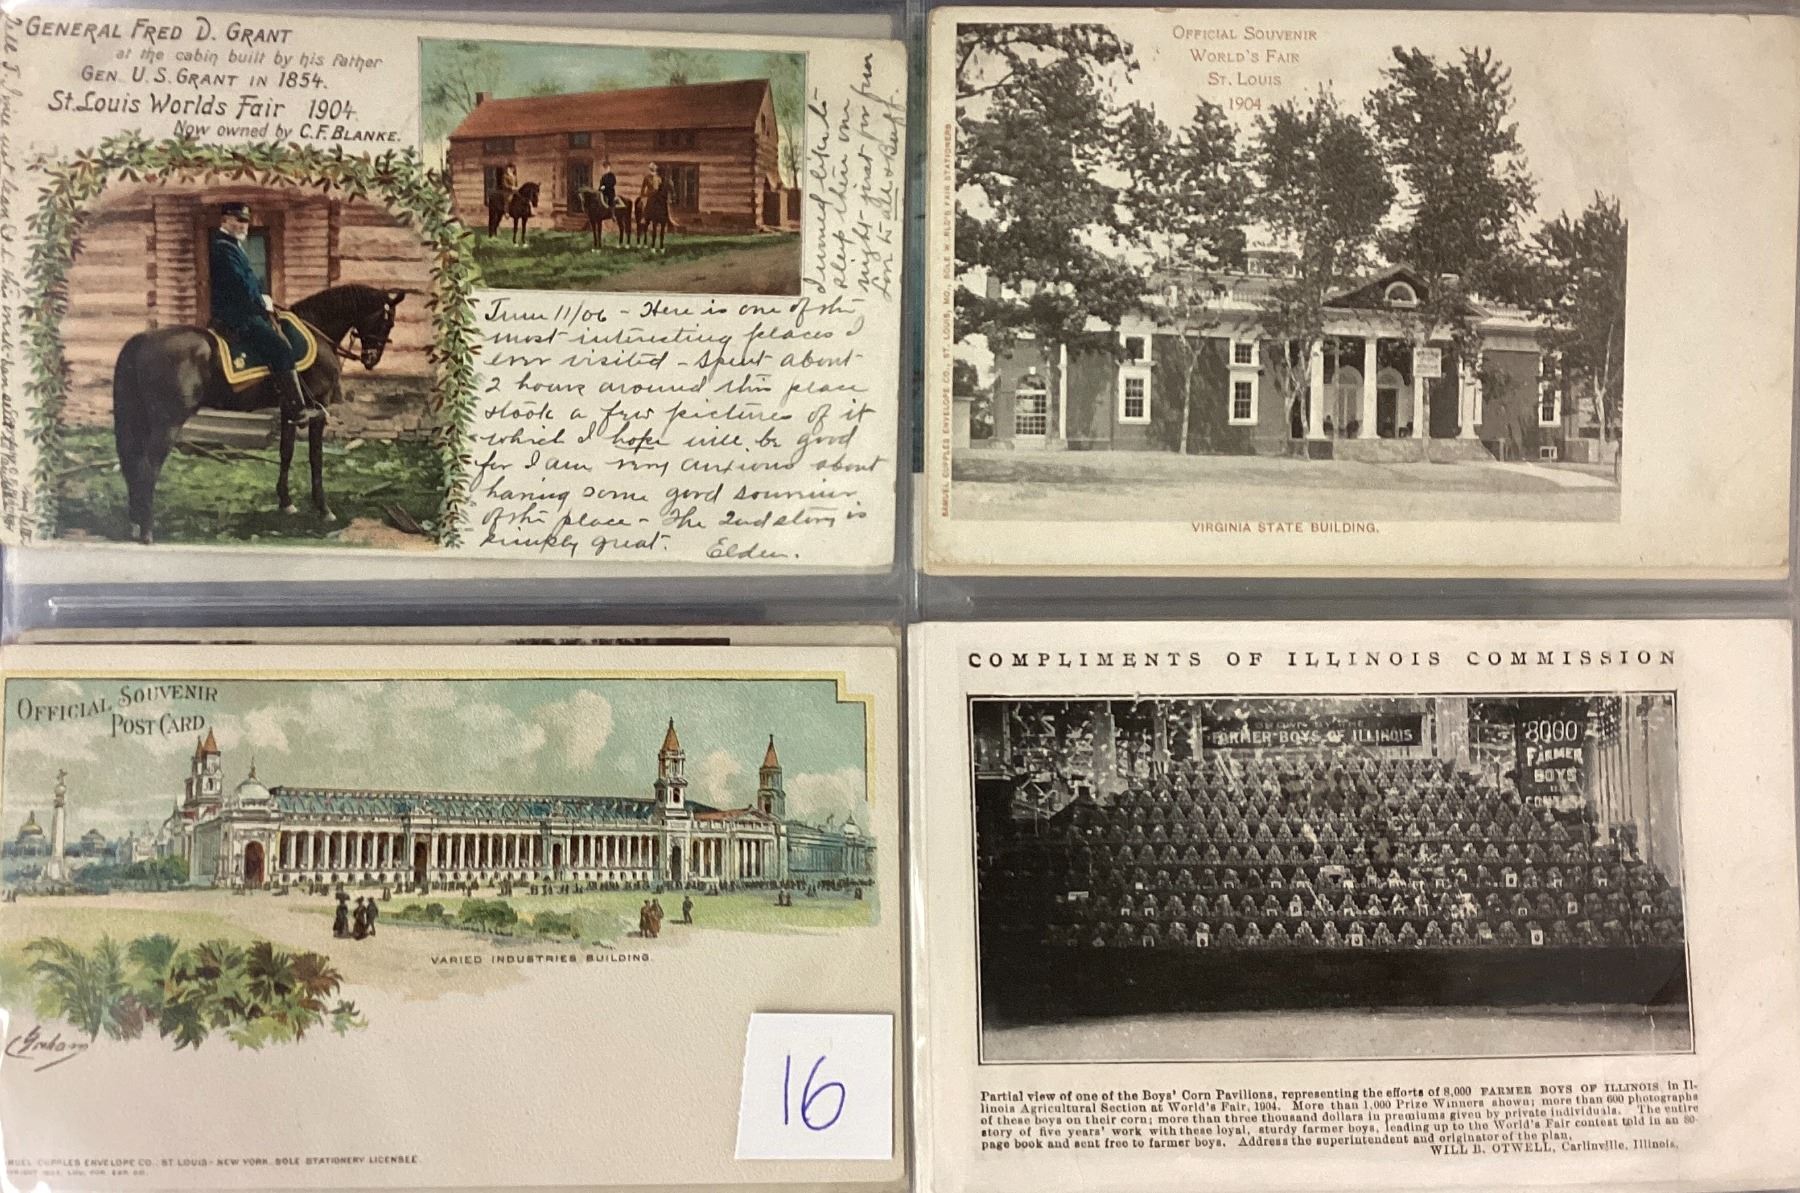 GENERAL FRED D. GRANT
at the cabin built by his Father
GEN. U.S. GRANT IN 1854.
St. Louis Worlds Fair 1904.
Now owned by C.F. BLANKE.
June 11/06 - Here is one of the
most interesting places I
ever visited - Spent about
2 hours around this place
& took a few pictures of it
which I hope will be good
for I am very anxious about
having some good souvenir
of the place - The 2nd story is
simply great. Elden.
I would like to
sleep there one
night just for fun
OFFICIAL SOUVENIR
WORLD'S FAIR
ST. LOUIS
1904
SAMUEL CUPPLES ENVELOPE CO., ST. LOUIS, MO., SOLE WORLD'S FAIR STATIONERS
VIRGINIA STATE BUILDING.
OFFICIAL SOUVENIR
POST CARD
VARIED INDUSTRIES BUILDING.
Graham
16
MUEL CUPPLES ENVELOPE CO., ST LOUIS - NEW YORK. SOLE STATIONERY LICENSEE.
COMPLIMENTS OF ILLINOIS COMMISSION
FARMER BOYS OF ILLINOIS
8000
FARMER
BOYS
Partial view of one of the Boys' Corn Pavilions, representing the efforts of 8,000 FARMER BOYS OF ILLINOIS in Il-
linois Agricultural Section at World's Fair, 1904. More than 1,000 Prize Winners shown; more than 600 photographs
of these boys on their corn; more than three thousand dollars in premiums given by private individuals. The entire
story of five years' work with these loyal, sturdy farmer boys, leading up to the World's Fair contest told in an 80-
page book and sent free to farmer boys. Address the superintendent and originator of the plan,
WILL B. OTWELL, Carlinville, Illinois.